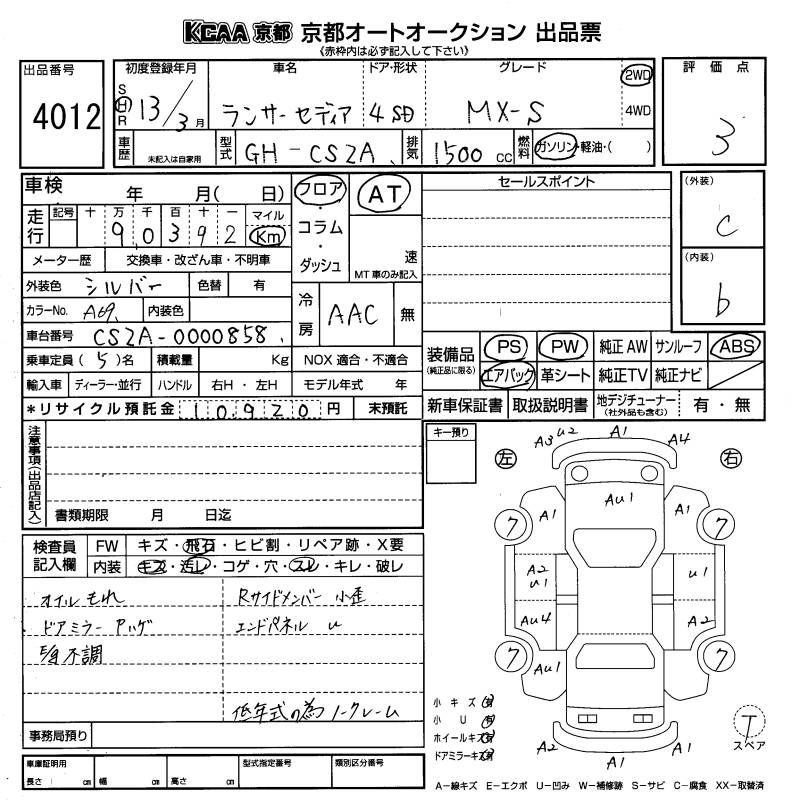 KCAA 京都 京都オートオークション 出品票
《赤枠内は必ず記入して下さい》
出品番号
4012
初度登録年月 車名 ドア・形状 グレード
S H R 13/3月 ランサーセディア 4 SD MX-S 2WD 4WD
車歴 未記入は自家用 型式 GH-CS2A 排気 1500 cc 燃料 ガソリン・軽油・( )
評価点
3
車検 年 月( 日)
走行 記号 十 万 千 百 十 一 マイル
9 0 3 9 2 Km
メーター歴 交換車・改ざん車・不明車
外装色 シルバー 色替 有
カラーNo. A69 内装色
車台番号 CS2A-0000858
乗車定員 ( 5 )名 積載量 Kg NOX 適合・不適合
輸入車 ディーラー・並行 ハンドル 右H・左H モデル年式 年
*リサイクル預託金 10920 円 未預託
フロア・コラム・ダッシュ
AT
速
MT車のみ記入
冷房 AAC 無
セールスポイント
(外装)
C
(内装)
b
装備品 (純正品に限る) PS PW 純正AW サンルーフ ABS
エアバック 革シート 純正TV 純正ナビ
新車保証書 取扱説明書 地デジチューナー (社外品も含む) 有・無
注意事項(出品店記入)
書類期限 月 日迄
キー預り
検査員記入欄 FW キズ・飛石・ヒビ割・リペア跡・X要
内装 キズ・汚レ・コゲ・穴・スレ・キレ・破レ
オイルもれ Rサイドメンバー 小歪
ドアミラー Pハゲ エンドパネル u
不調
低年式の為ノークレーム
事務局預り
車庫証明用 型式指定番号 類別区分番号
長さ cm 幅 cm 高さ cm
左 右
A3 u2 A1 A4
Au1
A1 A1
7 7
A2 u1 u1
Au4 A2
7 7
Au1 A1
A2 A1 A2
小キズ 有
小U 有
ホイールキズ 有
ドアミラーキズ 有
T
スペア
A-線キズ E-エクボ U-凹み W-補修跡 S-サビ C-腐食 XX-取替済